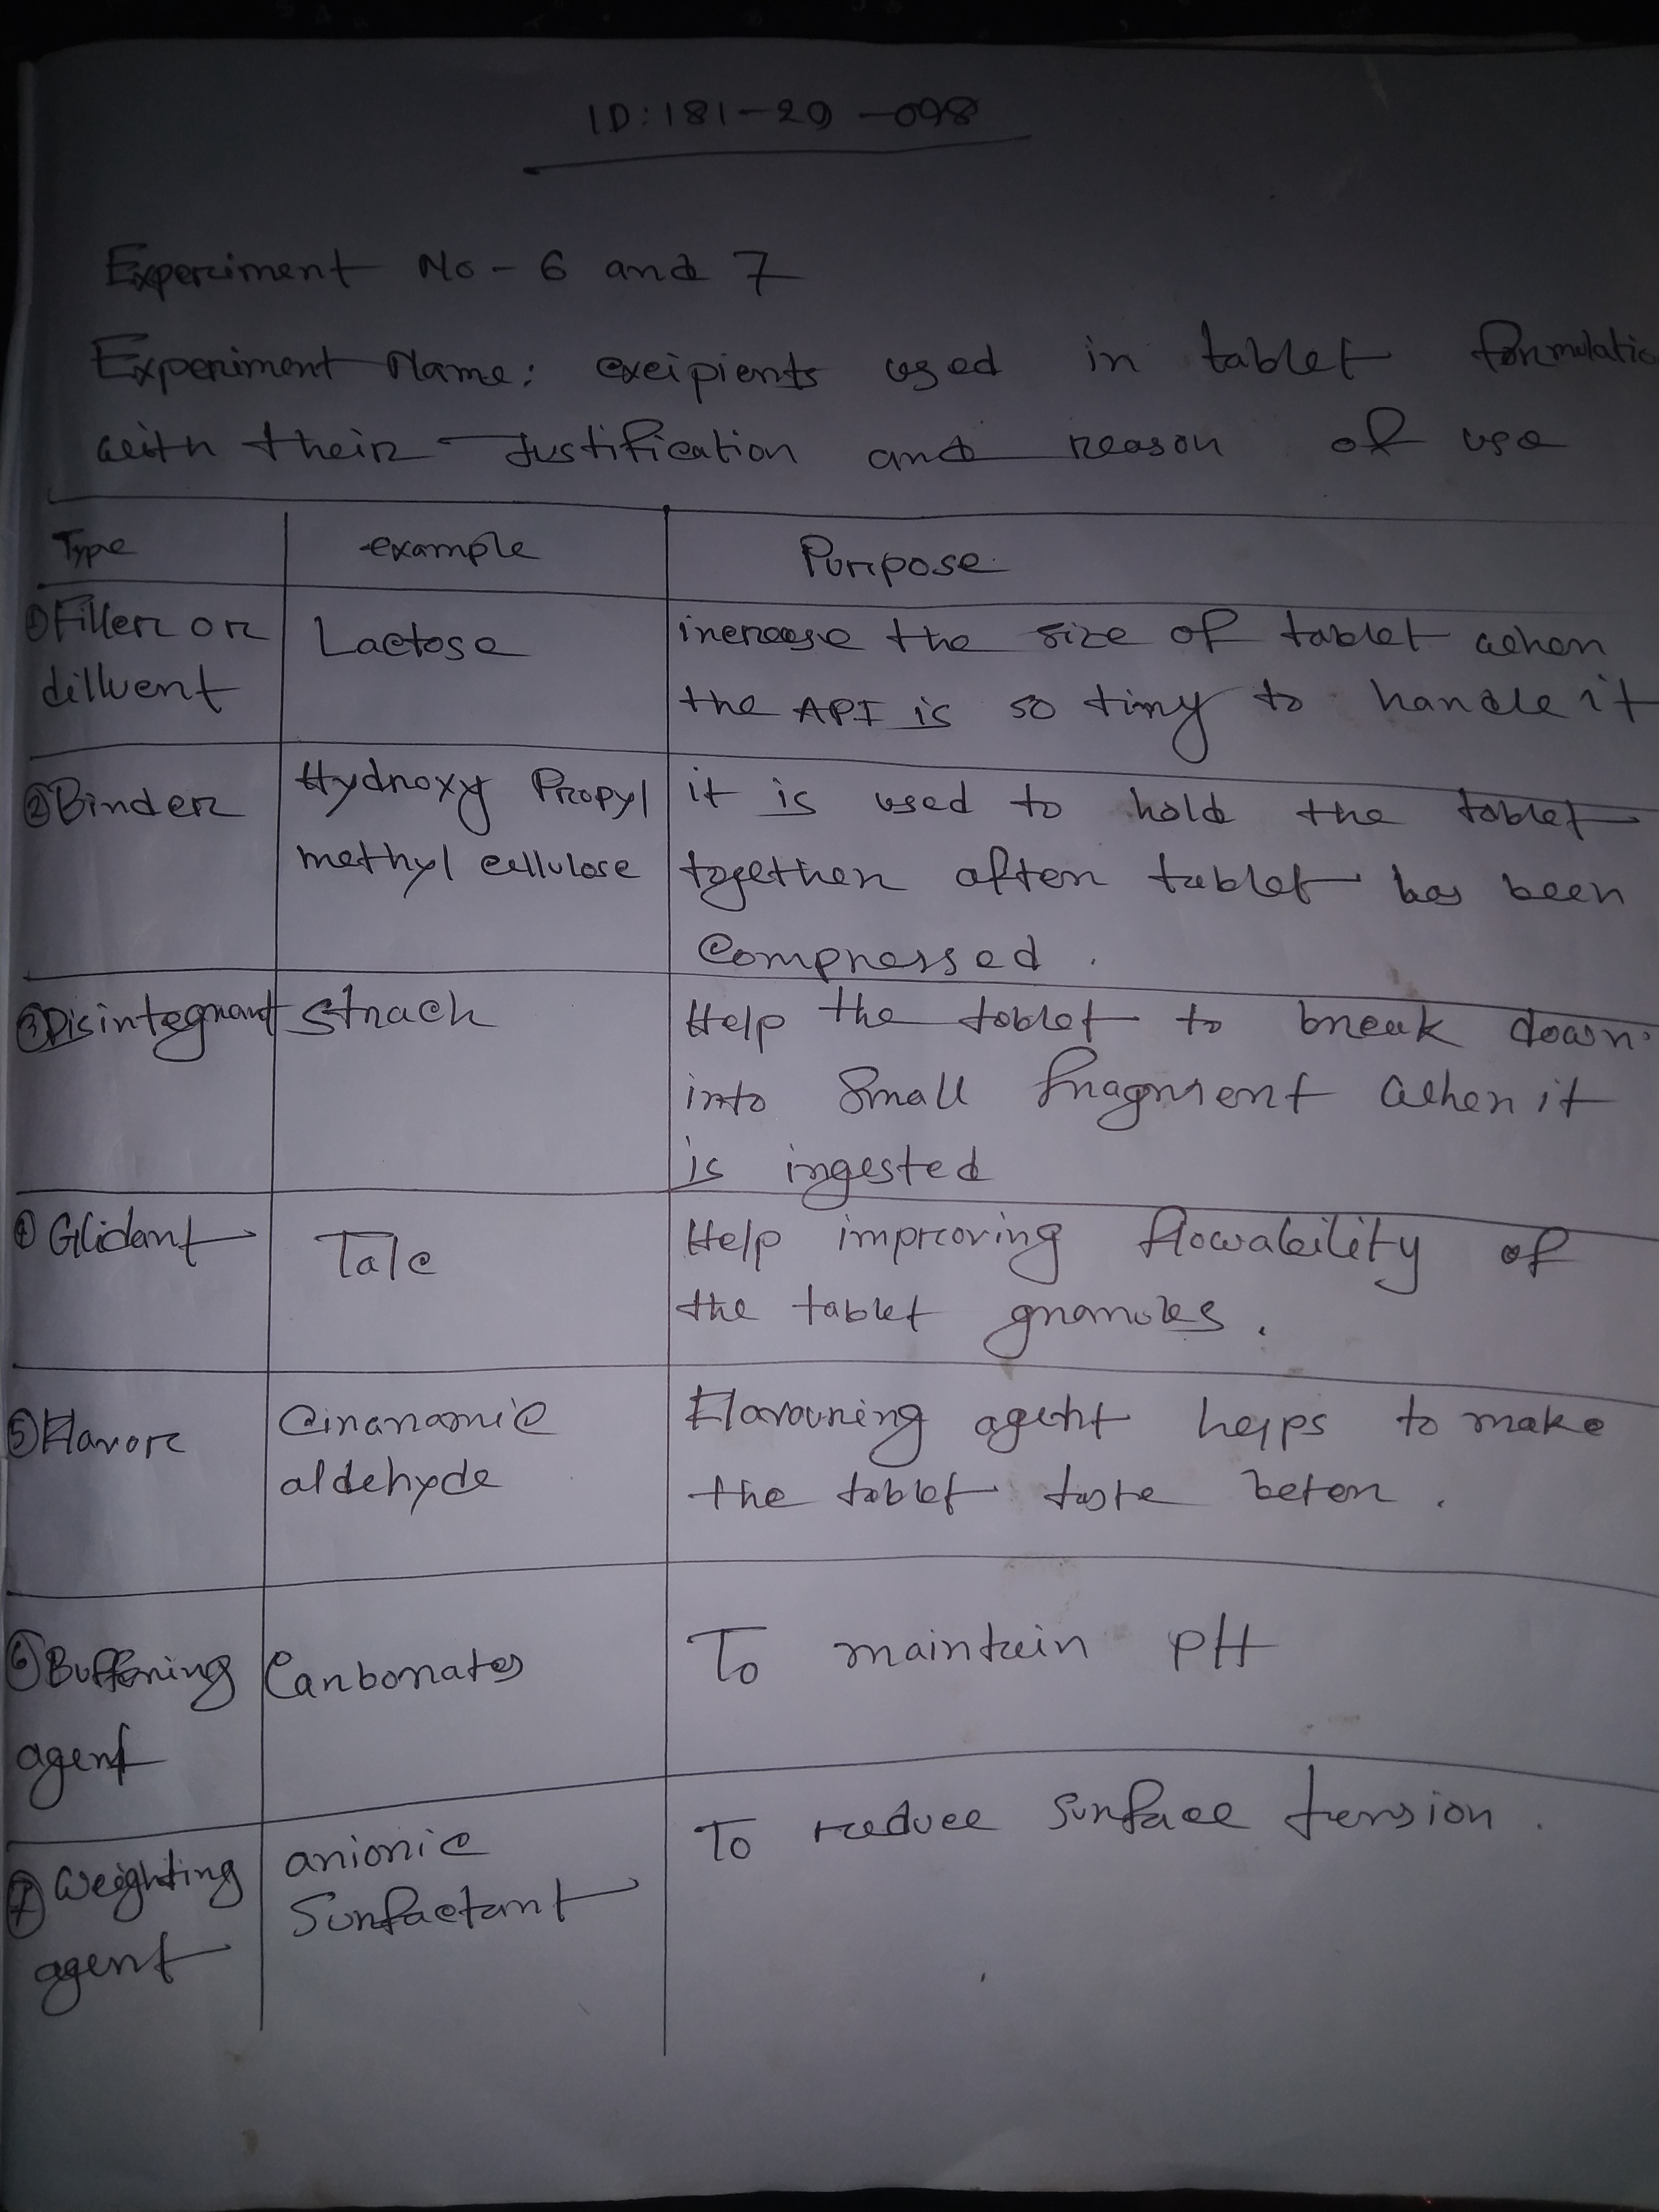 ID: 181-29-098
Experiment No - 6 and 7
Experiment Name: excipients used in tablet formulatio
with their Justification and reason of use
Type example Purpose
① Filler or Lactose increase the size of tablet when
dilluent the API is so tiny to handle it
② Binder Hydroxy Propyl it is used to hold the tablet
methyl cellulose together after tablet has been
Compressed.
③ Disintegrant Strach Help the tablet to break down
into Small fragment when it
is ingested
④ Glidant Talc Help improving flowability of
the tablet granules.
⑤ Flavor Cinanamic Flavouring agent helps to make
aldehyde the tablet taste beter.
⑥ Buffering Carbonates To maintain pH
agent
⑦ Weighting anionic To reduce Surface tension.
agent Surfactant